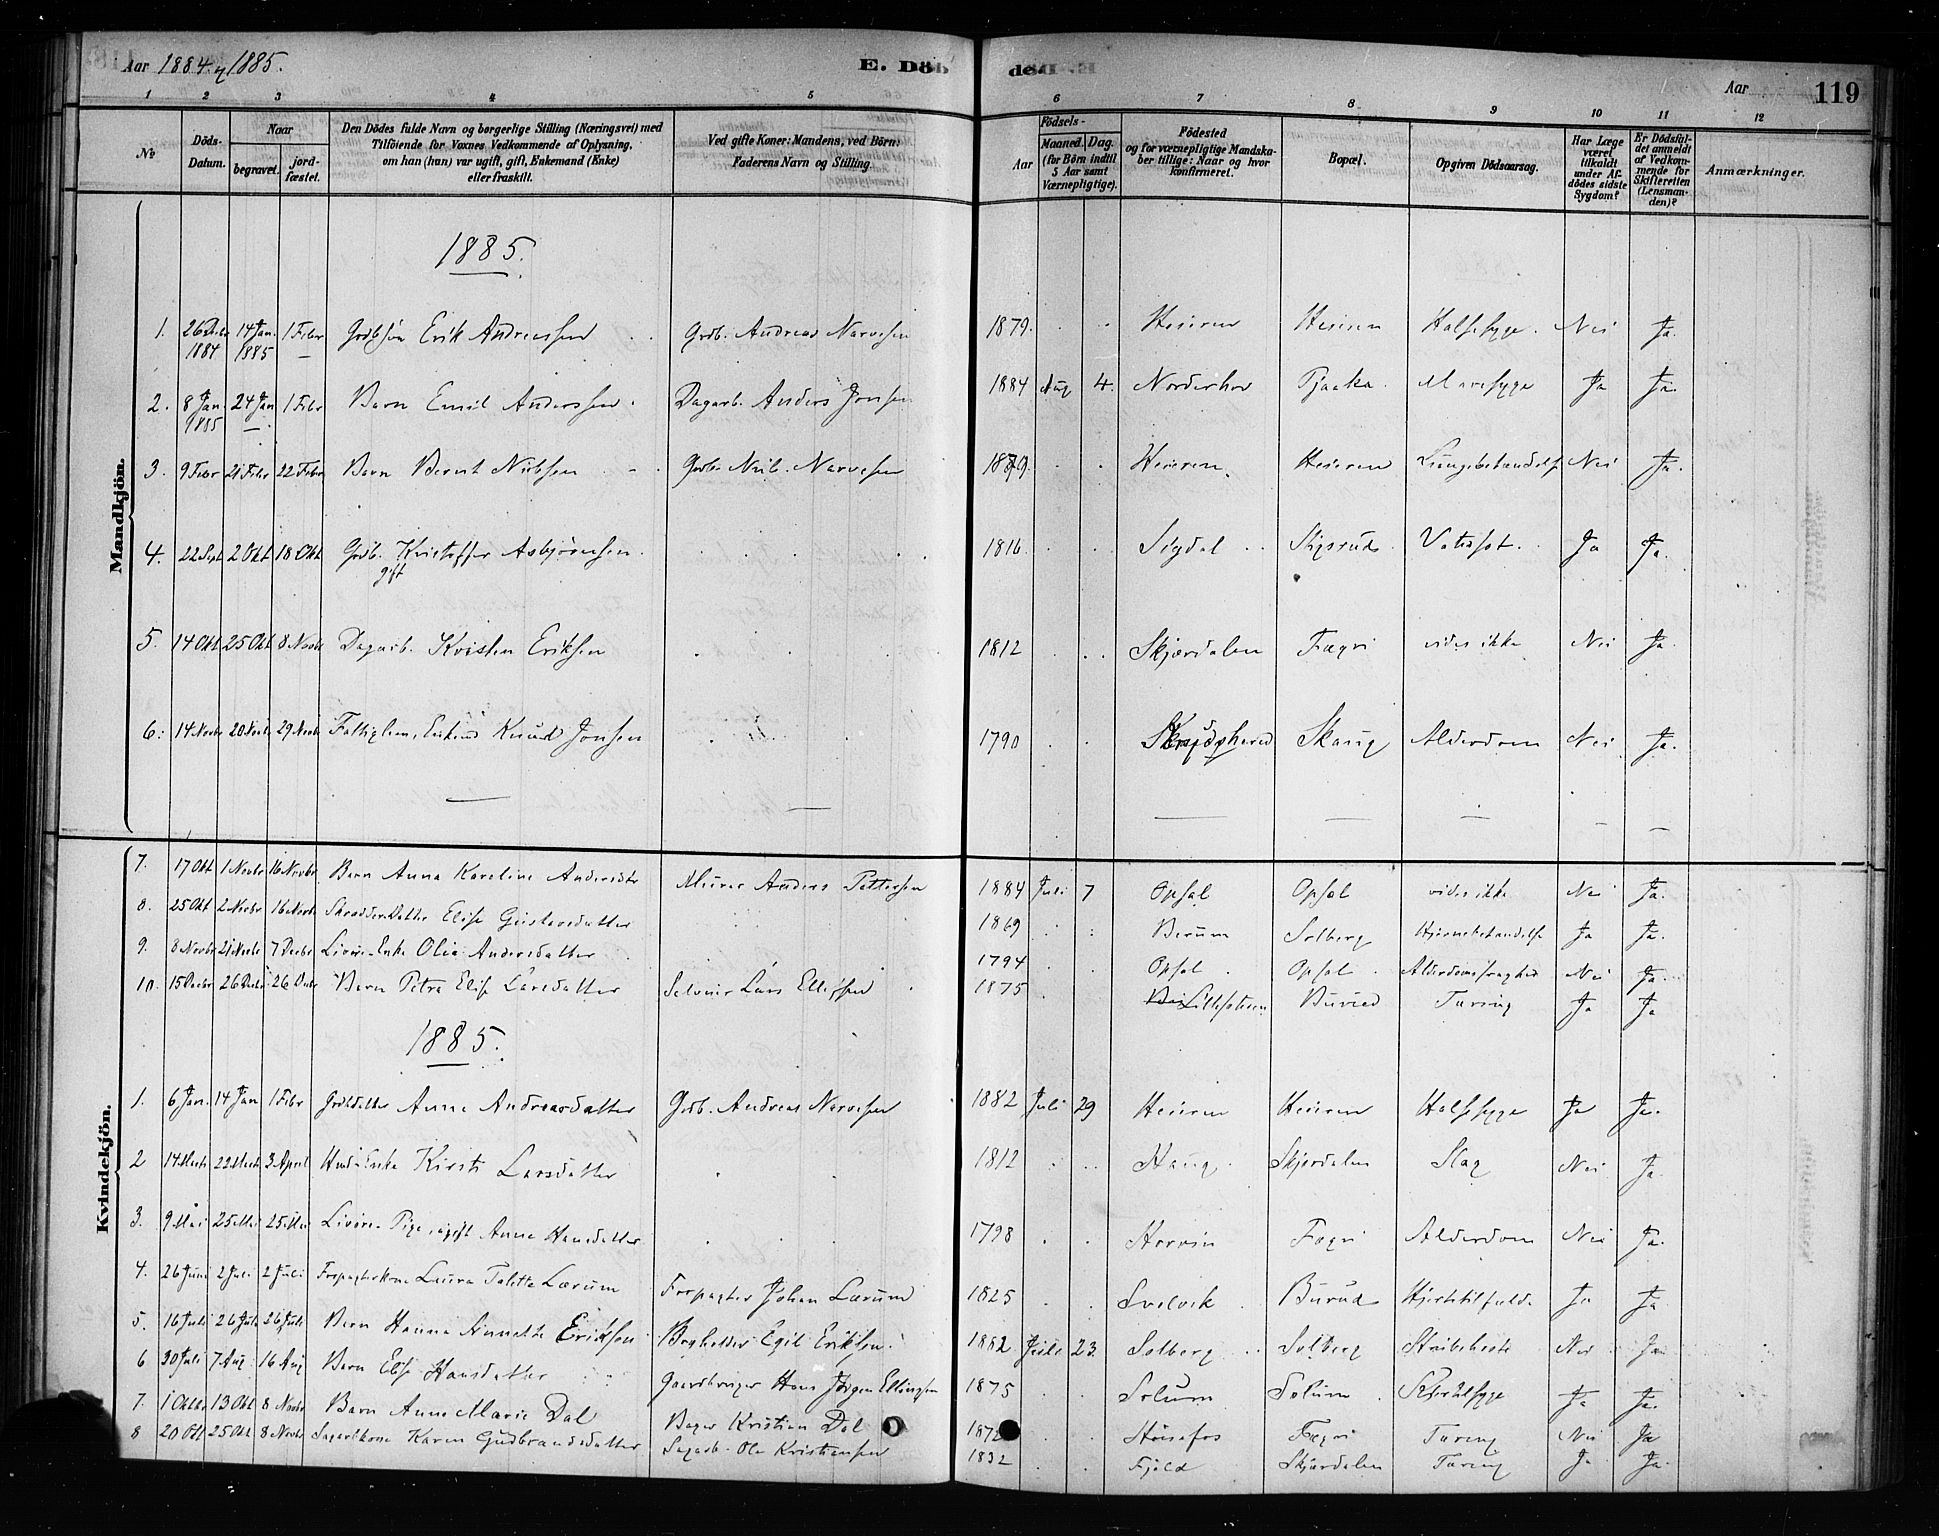 Aar 1884 & 1885.
E. Dö
de.
Aar
119
1 2 3 4 5 6 7 8 9 10 11 12
№
Döds-Datum.
Naar
begravet.
jord-fæstet.
Den Dödes fulde Navn og borgerlige Stilling (Næringsvei) med
Tilföiende for Voxnes Vedkommende af Oplysning,
om han (hun) var ugift, gift, Enkemand (Enke)
eller fraskilt.
Ved gifte Koner: Mandens, ved Börn:
Faderens Navn og Stilling.
Födsels-
Aar
Maaned. Dag.
(for Börn indtil
5 Aar samt
Værnepligtige).
Födested
og for værnepligtige Mandska-
ber tillige: Naar og hvor
konfirmeret.
Bopæl.
Opgiven Dödsaarsag.
Har Læge
været
tilkaldt
under Af-
dödes sidste
Sygdom?
Er Dödsfal-
det anmeldt
af Vedkom-
mende for
Skifteretten
(Lensman-
den)?
Anmærkninger.
Mandkjön.
1885.
1. 26 Decbr 1884 14 Jan. 1885 1 Febr Grdbsön Erik Andreassen Grdb. Andreas Narvesen 1879. Heieren Heieren Halssyge. Nei Ja.
2. 8 Jan. 1885 24 Jan 1 Febr Barn Emil Anderssen. Dagarb. Anders Jonsen 1884 Aug 4. Norderhov Tjaaka Mavesyge Ja Ja.
3. 9 Febr 21 Febr 22 Febr Barn Bernt Nilssen Grdb. Nils Narvesen 1879. Heieren. Heieren Nei Ja.
4. 22 Sept 2 Okt 18 Okt Grdb. Kristoffer Asbjörnsen gift 1816 Sigdal Vatersot. Ja Ja.
5. 14 Okt 25 Okt 8 Novbr Dagarb. Kristen Eriksen 1812 Skjærdalen Fægri vides ikke Nei Ja
6. 14 Novbr 20 Novbr 29 Novbr Fattiglem, Enkemd Knud Jonsen 1790 Skaug Alderdom Nei Ja.
Kvindekjön.
7. 17 Okt 1 Novbr 16 Novbr Barn Anna Karoline Andersdtr Murer Anders Pettersen 1884 Juli 7 Opsal Opsal vides ikke Nei Ja.
8. 25 Okt 2 Novbr 16 Novbr Skrædder Datter Elise Gustavsdatter 1869 Berum Solberg Ja Ja.
9. 8 Novbr 21 Novbr 7 Decbr Livöre-Enke Olia Andersdatter 1794 Opsal Opsal Alderdomssvaghed Nei Ja.
10. 15 Decbr 26 Decbr 26 Decbr Barn Petra Elise Larsdatter Selveier Lars Ellefsen 1875 Burud Tæring Ja Ja
1885.
1. 6 Jan. 14 Jan 1 Febr Grdbdatter Anne Andreasdatter Grdb. Andreas Narvesen 1882 Juli 29 Heieren Heieren Halssyge Ja Ja.
2 14 Marts 22 Marts 3 April Husm. Enke Kirsti Larsdatter 1812 Haug Skjærdalen Slag Nei Ja.
3. 9 Mai 25 Mai 25 Mai Livöre-Pige, ugift Anne Hansdatter 1798 Horvin Fægri Alderdom Nei Ja.
4. 26 Juni 2 Juli 2 Juli Forpagterkone Laura Talette Lærum Forpagter Johan Lærum 1825 Svelvik Burud Hjertetilfælde Ja Ja.
5. 16 Juli 26 Juli 26 Juli Barn Hanna Annette Eriksen Egil Eriksen. 1882 23. Solberg Solberg Strubehoste Nei Ja
6 30 Juli 7 Aug 16 Aug Barn Elise Hansdatter Gaardbruger Hans Jörgen Ellingsen 1875 Solum Solum Ja Ja.
7. 1 Oktbr 13 Okt 8 Novbr Barn Anne Marie Dal Bager Kristian Dal Hönefos Fægri Tæring Nei Ja
8 20 Okt 25 Okt 8 Novbr Sagarbkone Karen Gudbrandsdatter Sagarb. Ole Kristiansen 1832 Fjeld Skjærdalen Tæring Ja Ja.